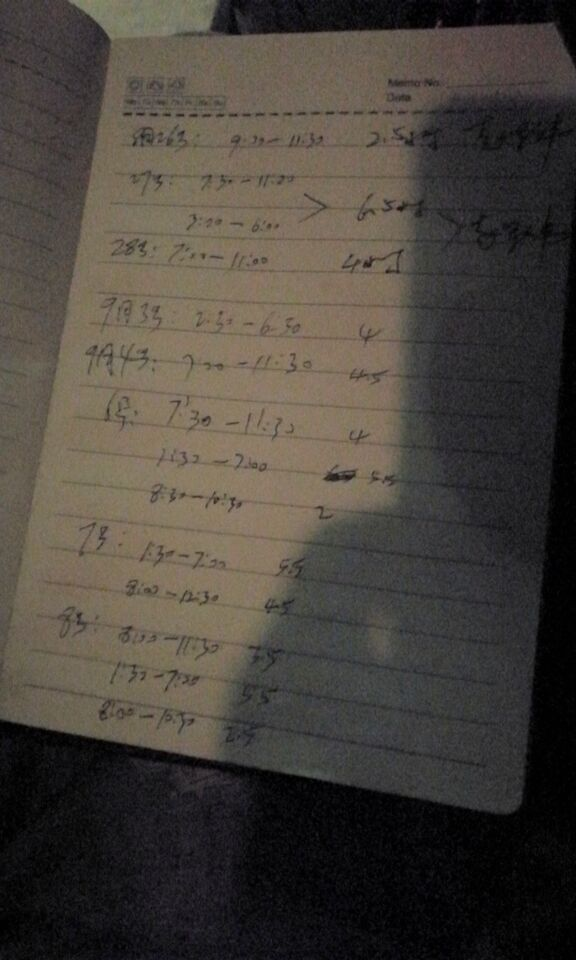 Memo No.
Date
26号: 9:00-11:30 2.5小时
27号: 7:30-11:00
3:00-6:00 6.5小时
28号: 7:00-11:00 4小时
9月3号: 2:30-6:30 4
9月4号: 7:00-11:30 4.5
6号: 7:30-11:30 4
1:30-7:00 5.5
8:30-10:30 2
7号: 1:30-7:00 5.5
8:00-12:30 4.5
8号: 8:00-11:30 3.5
1:30-7:00 5.5
8:00-10:30 2.5